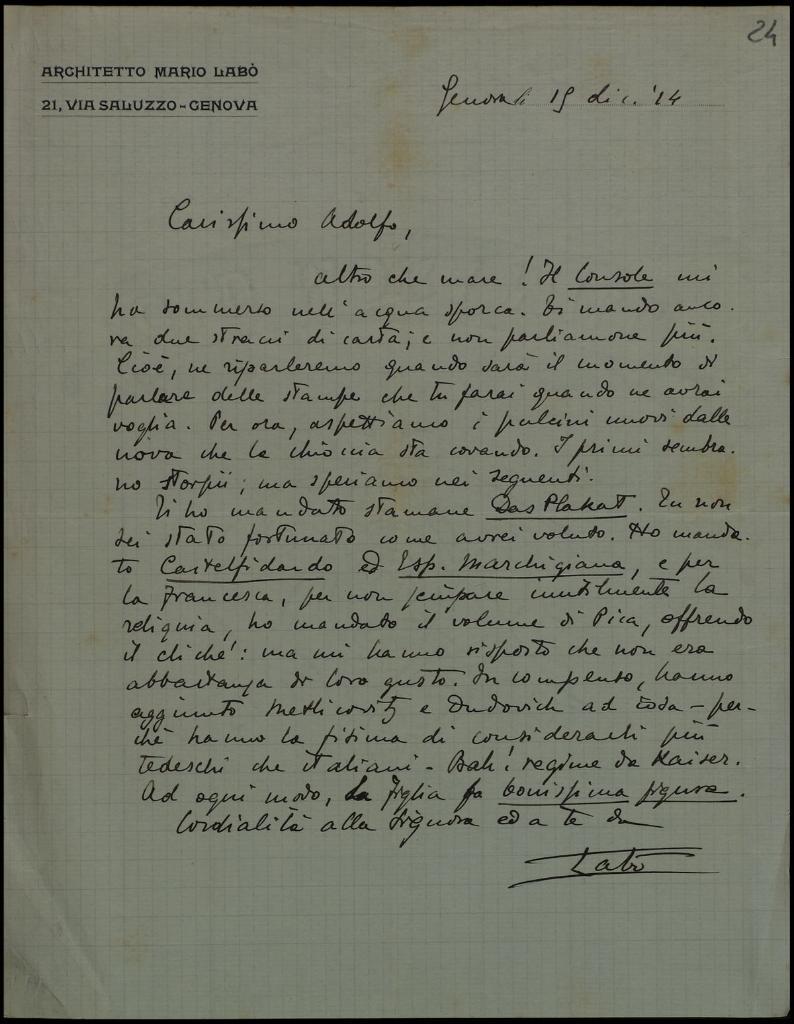 24
ARCHITETTO MARIO LABÒ
21, VIA SALUZZO - GENOVA
Genova li 19 dic. '14
Carissimo Adolfo,
altro che mare! Il Console mi
ha sommerso nell'acqua sporca. Ti mando anco-
ra due stracci di carta; e non parliamone più.
Cioè, ne riparleremo quando sarà il momento di
parlare delle stampe che tu farai quando ne avrai
voglia. Per ora, aspettiamo i pulcini nuovi dalle
uova che la chioccia sta covando. I primi sembra-
no storpii; ma speriamo nei seguenti.
Ti ho mandato stamane Das Plakat. Tu non
sei stato fortunato come avrei voluto. Ho manda-
to Castelfidardo ed Esp. Marchigiana, e per
la Francesca, per non sciupare inutilmente la
reliquia, ho mandato il volume di Pica, offrendo
il cliché: ma mi hanno risposto che non era
abbastanza di loro gusto. In compenso, hanno
aggiunto Metlicovitz e Dudovich ad - per-
chè hanno la fisima di considerarli più
tedeschi che italiani - Bah! regime da Kaiser.
Ad ogni modo, la figlia fa bonissima figura.
Cordialità alla Signora ed a te da
Labò